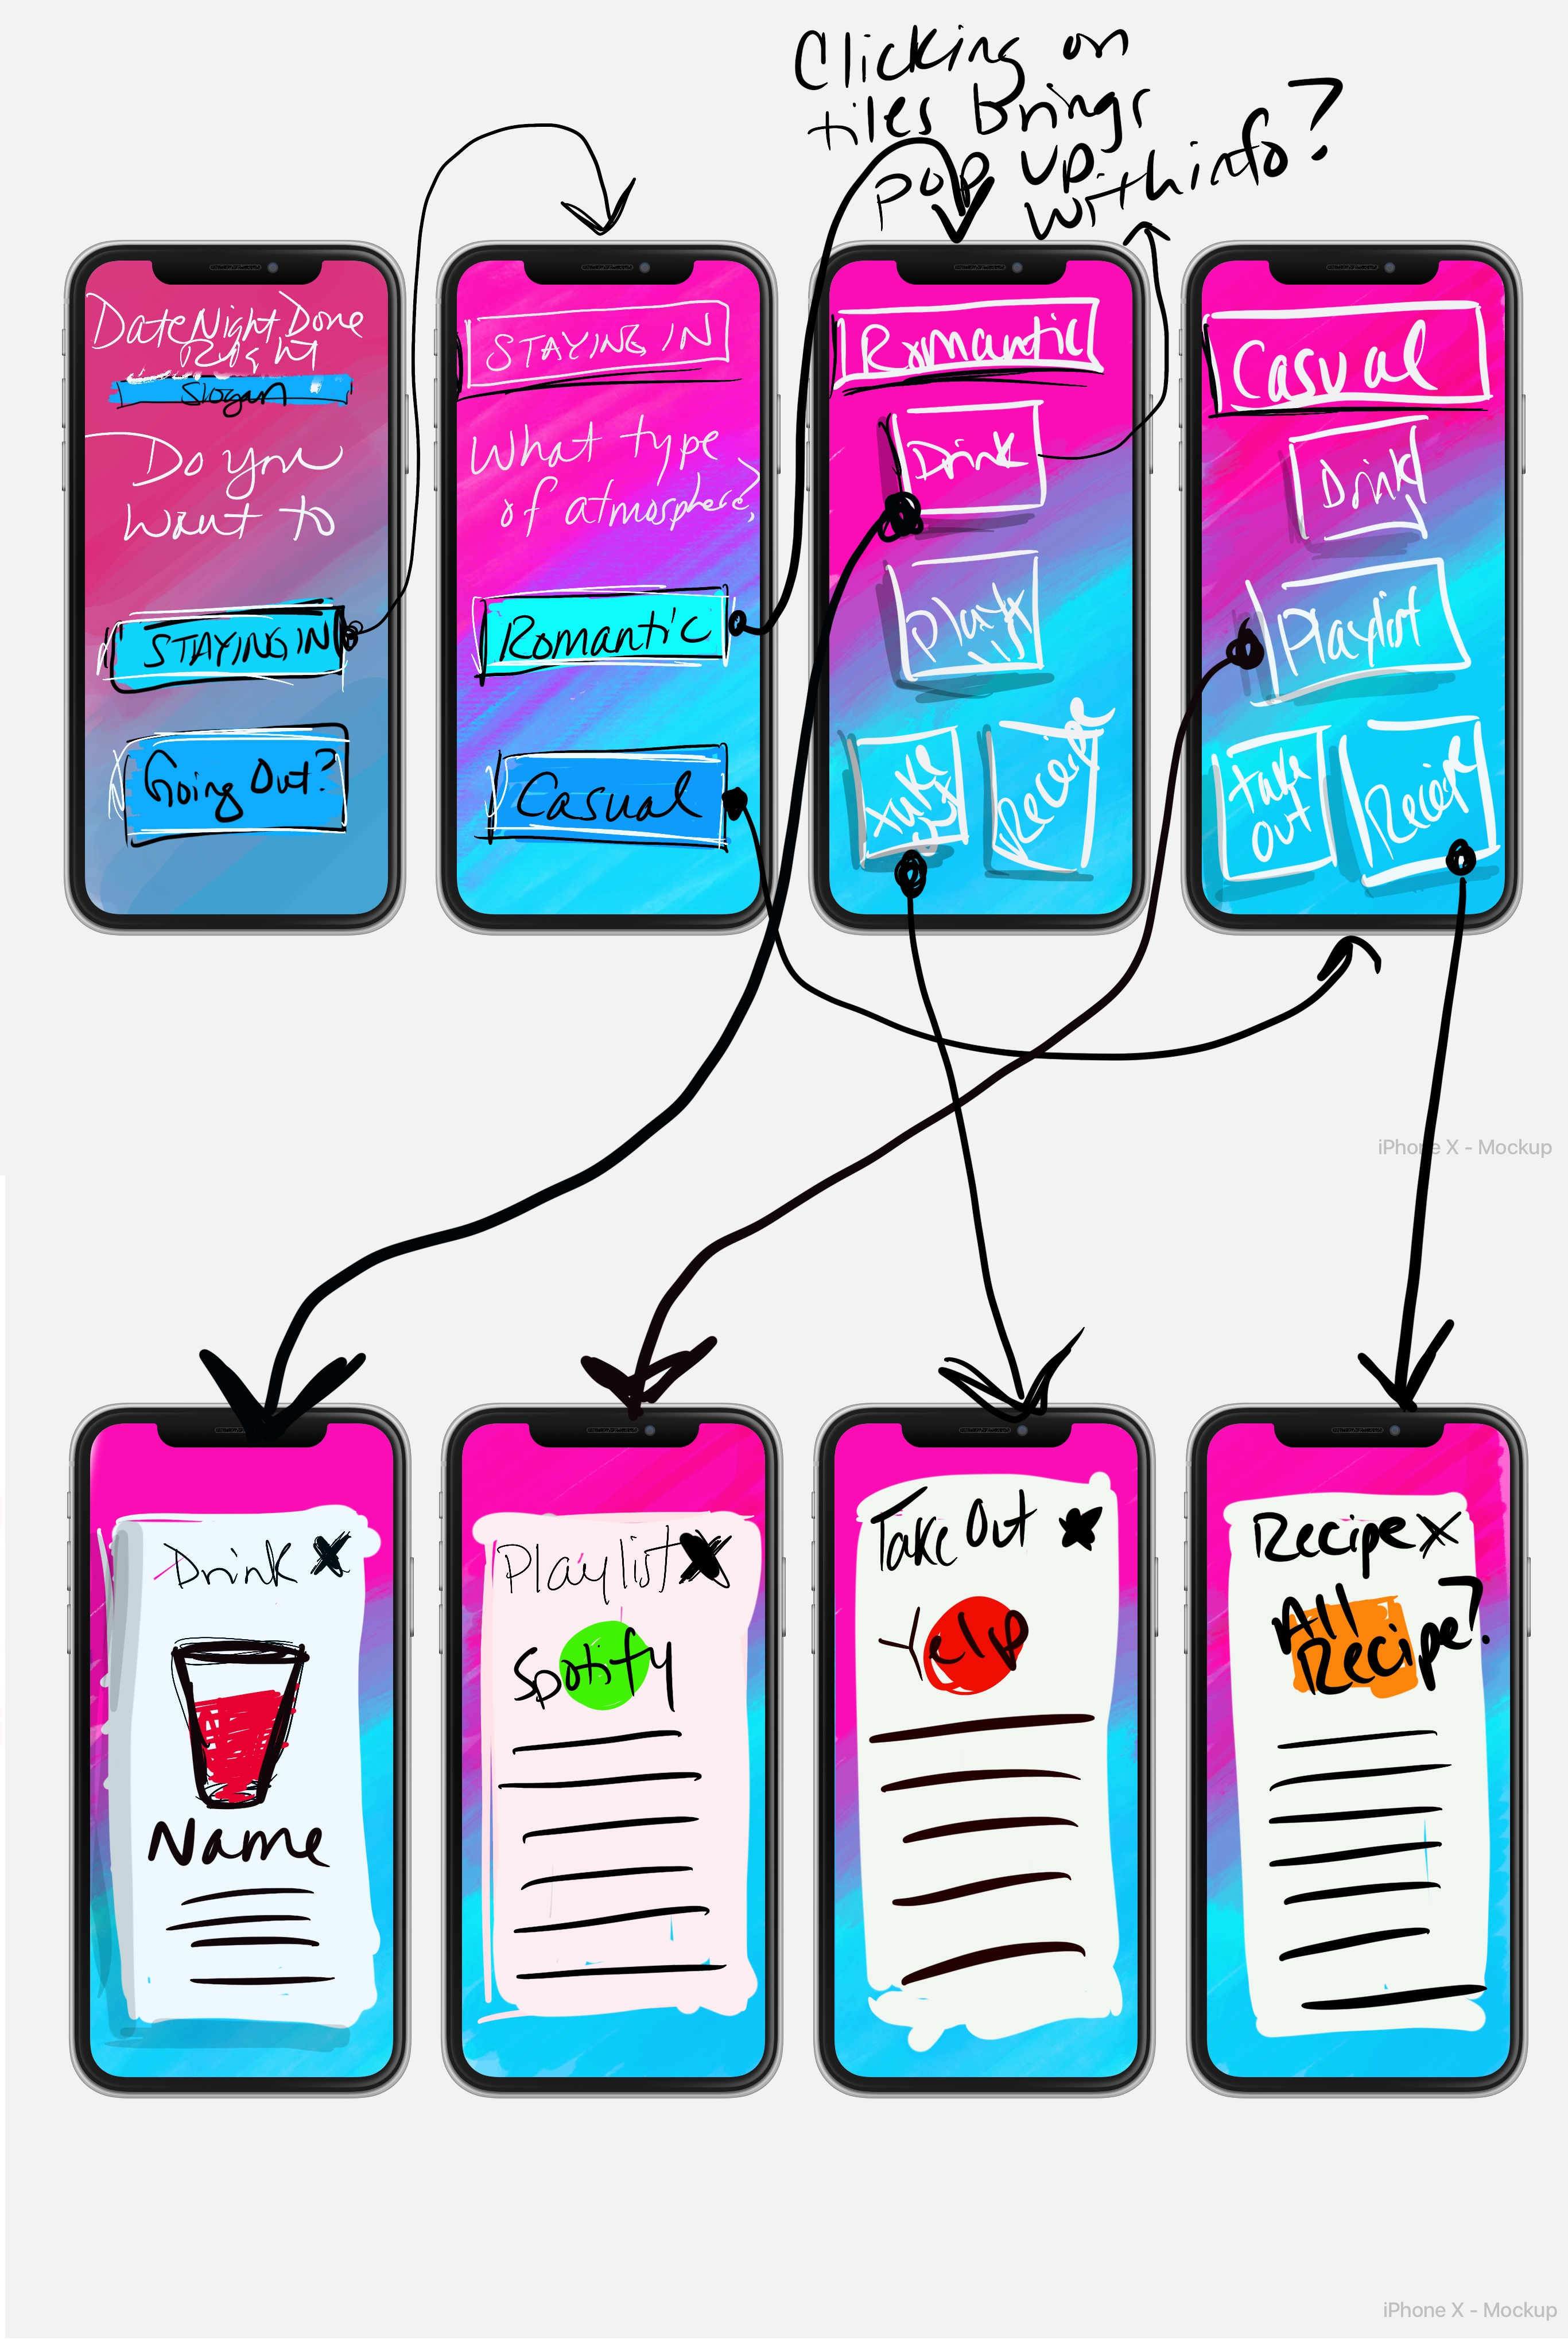 Clicking on
tiles Brings
pop up
with info?
Date Night Done
Right
Slogan
Do you
Want to
STAYING IN
Going Out?
STAYING IN
What type
of atmosphere?
Romantic
Casual
Romantic
Drink
Playlist
take
out
Recipe
Casual
Drink
Playlist
take
out
Recipe
iPhone X - Mockup
Drink X
Name
Playlist X
Spotify
Take Out X
Yelp
Recipe X
All
Recipe?
iPhone X - Mockup